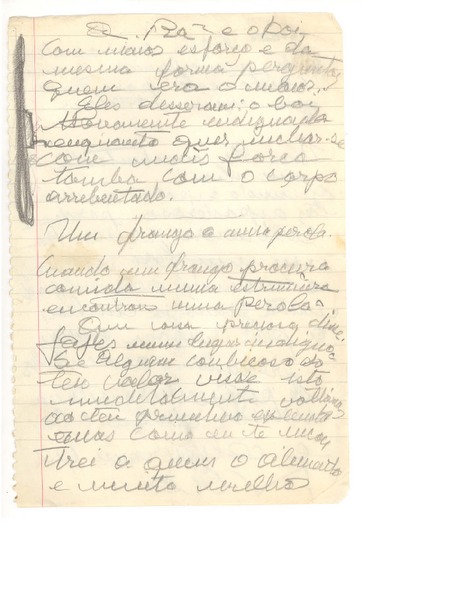 A Rã e o boi
com maior esforço e da
mesma forma pergunta
quem era o maior.
Eles disseram: o boi
Novamente indignada
enquanto quer inchar-se
com mais força
tomba com o corpo
arrebentado.
Um frango e uma perola.
Quando um frango procura
comida numa estrumeira
encontrou uma perola
Que coisa preciosa
jazes num lugar indigno
Se alguem cubiçoso do
teu valor visse isto
voltarias
ao teu primeiro
mas como eu te encon
trei a quem o alimento
e muito melhor